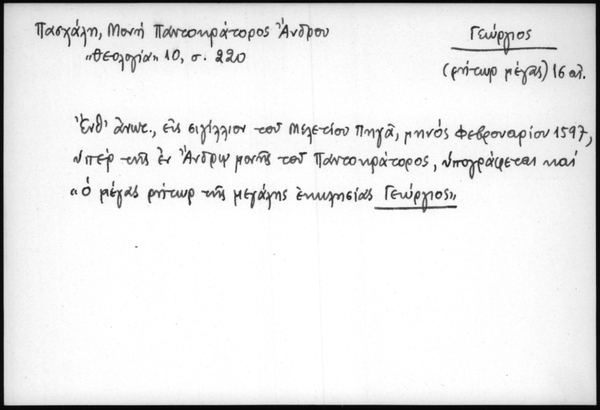 Πασχάλη, Μονή Παντοκράτορος Ἄνδρου
"Θεολογία" 10, σ. 220
Γεώργιος
(ρήτωρ μέγας) 16 αἰ.
Ἐνθ' ἀνωτ., εἰς σιγίλλιον τοῦ Μελετίου Πηγᾶ, μηνός Φεβρουαρίου 1597,
ὑπέρ τῆς ἐν Ἄνδρῳ μονῆς τοῦ Παντοκράτορος, ὑπογράφεται καί
"ὁ μέγας ρήτωρ τῆς μεγάλης ἐκκλησίας Γεώργιος"